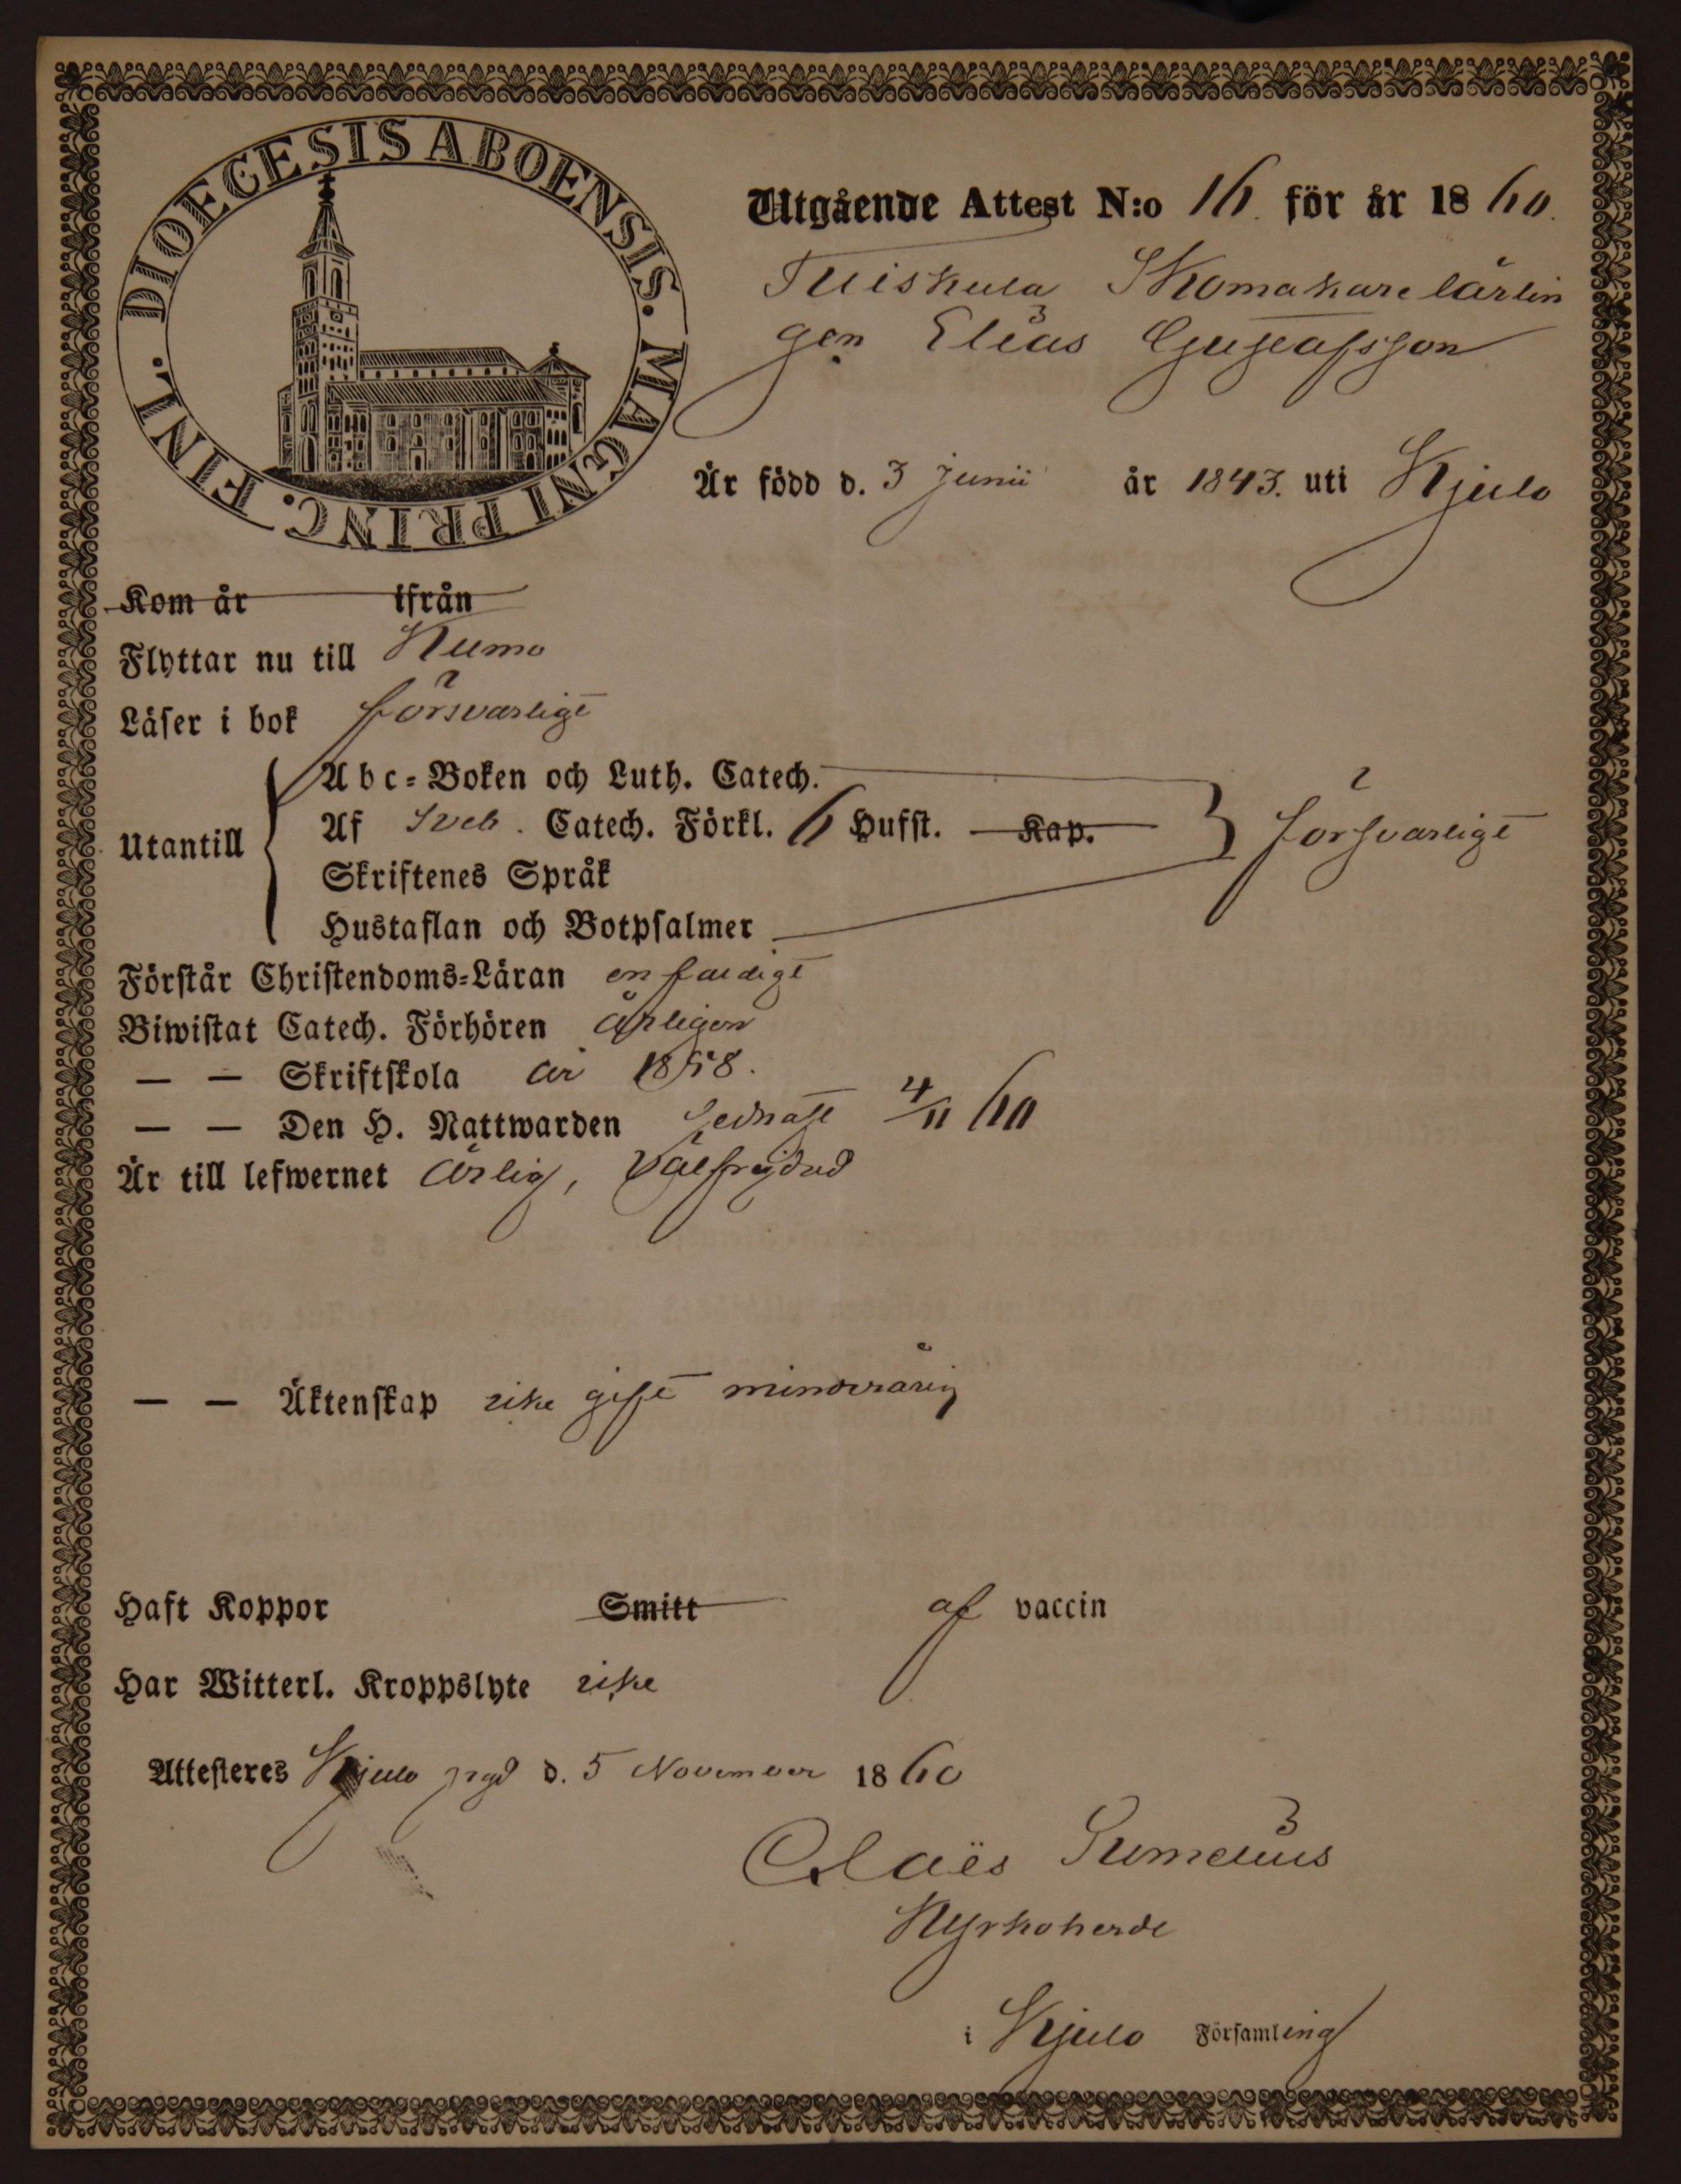 DIOECESIS ABOENSIS. MAGNI PRINC. FINL.
Utgående Attest N:o 16. för år 1860.
Tuiskula Skomakarelärlin
gen Elias Gustafsson
Är född d. 3 Junii år 1843. uti Kjulo
Kom år ifrån
Flyttar nu till Kumo
Läser i bok försvarligt
Utantill
Abc-Boken och Luth. Catech.
Af Sveb. Catech. Förkl. 6 Hufst. Kap.
försvarligt
Skriftenes Språk
Hustaflan och Botpsalmer
Förstår Christendoms-Läran enfaldigt
Biwistat Catech. Förhören årligen
— — Skriftskola år 1858.
— — Den H. Nattwarden sednast 4/11 60
Är till lefwernet ärlig, välfrejdad
— — Äktenskap icke gift minderårig
Haft Koppor Smitt af vaccin
Har Witterl. Kroppslyte icke
Attesteres Kjulo prgd d. 5 November 1860
Claës Sumelius
Kyrkoherde
i Kjulo Församling